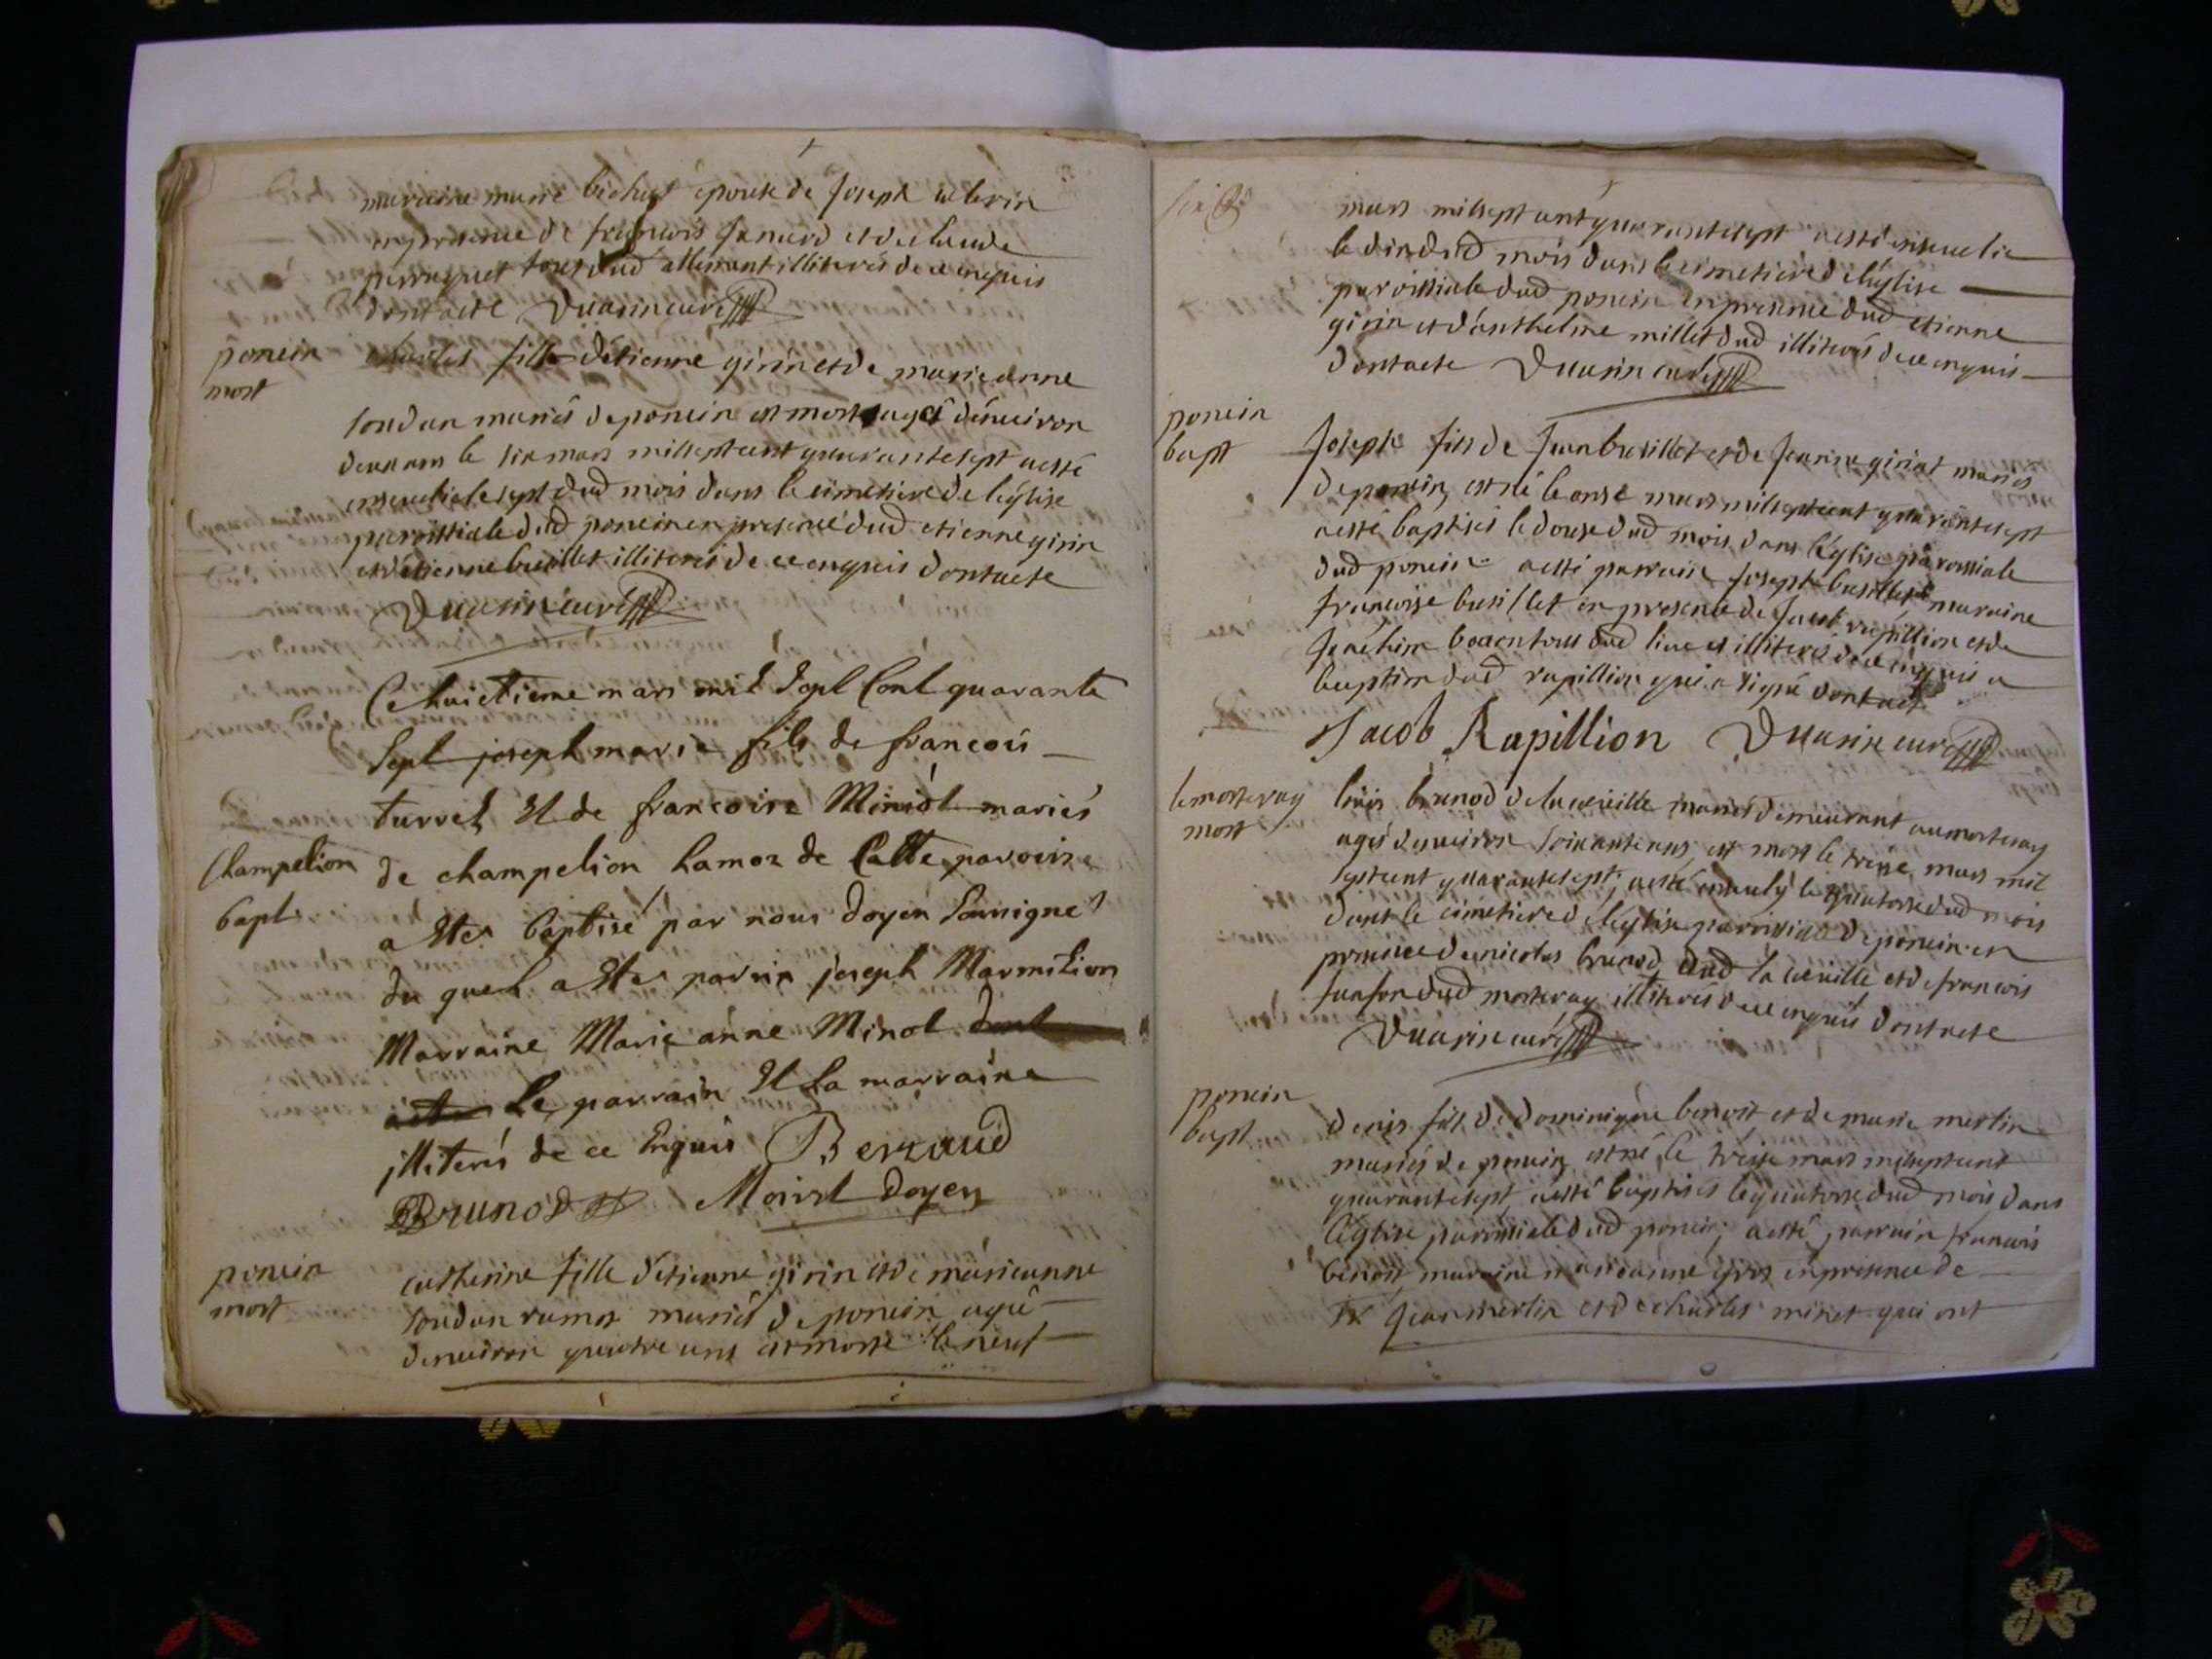 maraine marie bichat épouse de Joseph
en presence de francois Janard et de claude
perruquet tous dud illiterés de ce enquis
dont acte Duarin curé
poncin
mort
charles fille détienne girin et de marie anne
loudan mariés de poncin est mort agé dénuiron
deux ans le six mars mil sept cent quarante sept a esté
enseueli le sept dud mois dans le cimetiere de léglise
parroissiale dud poncin en presence dud etienne girin
et détienne buillet illiterés de ce enquis dont acte
Duarin curé
Le huictieme mars mil Sept Cent quarante
Sept joseph marie fils de francois
turrel Et de francoise Miniol mariés
Champelion
bapt
de champelion hamoz de Cette paroisse
a Eter baptisé par nous doyen Sousigné
du quel a Eter parrin joseph Marmilion
Marraine Marie anne Minol dont
acte Le parrain Et La marraine
illiterés de ce Enquis Berraud
Brunod Moiret doyen
poncin
mort
catherine fille détienne girin et de marieanne
loudan ramoz mariés de poncin agée
denuiron quatre ans est morte le neuf
six
mars mil sept cent quarante sept a esté enseuelie
le dix dud mois dans le cimetiere de léglise
paroissiale dud poncin en presence dud etienne
girin et dánthelme millet dud illiterés de ce enquis
dont acte Duarin curé
poncin
bapt
Joseph fils de Jean busillet et de Jeanne giriat mariés
de poncin, est né le onze mars mil sept cent quarante sept
a esté baptisés le douse dud mois dans léglise paroissiale
dud poncin a esté parrain Joseph busillet maraine
francoise busillet en presence de Jacob rapillion et de
Joachim tous dud lieu et illiterés de ce enquis a
lexeption dud rapillion qui a signé dont acte
Jacob Rapillion Duarin curé
le morteray
mort
louis brunod de la cueille mariés demeurant au morteray
agés denuiron soixante ans, est mort le treise mars mil
sept cent quarante sept, a esté enseuely le quatorse dud mois
dans le cimetiere de léglise paroissiale de poncin en
presence de nicolas brunod dud la cueille et de francois
dud morteray illiterés de ce enquis dont acte
Duarin curé
poncin
bapt
denis fils de dominique benoit et de marie merlin
mariés de poncin est né le treise mars mil sept cent
quarante sept, a esté baptisés le quatorse dud mois dans
léglise paroissiale dud poncin, a esté parrain francois
benoit maraine marieanne gros en presence de
Jean merlin et de charles minet qui ont